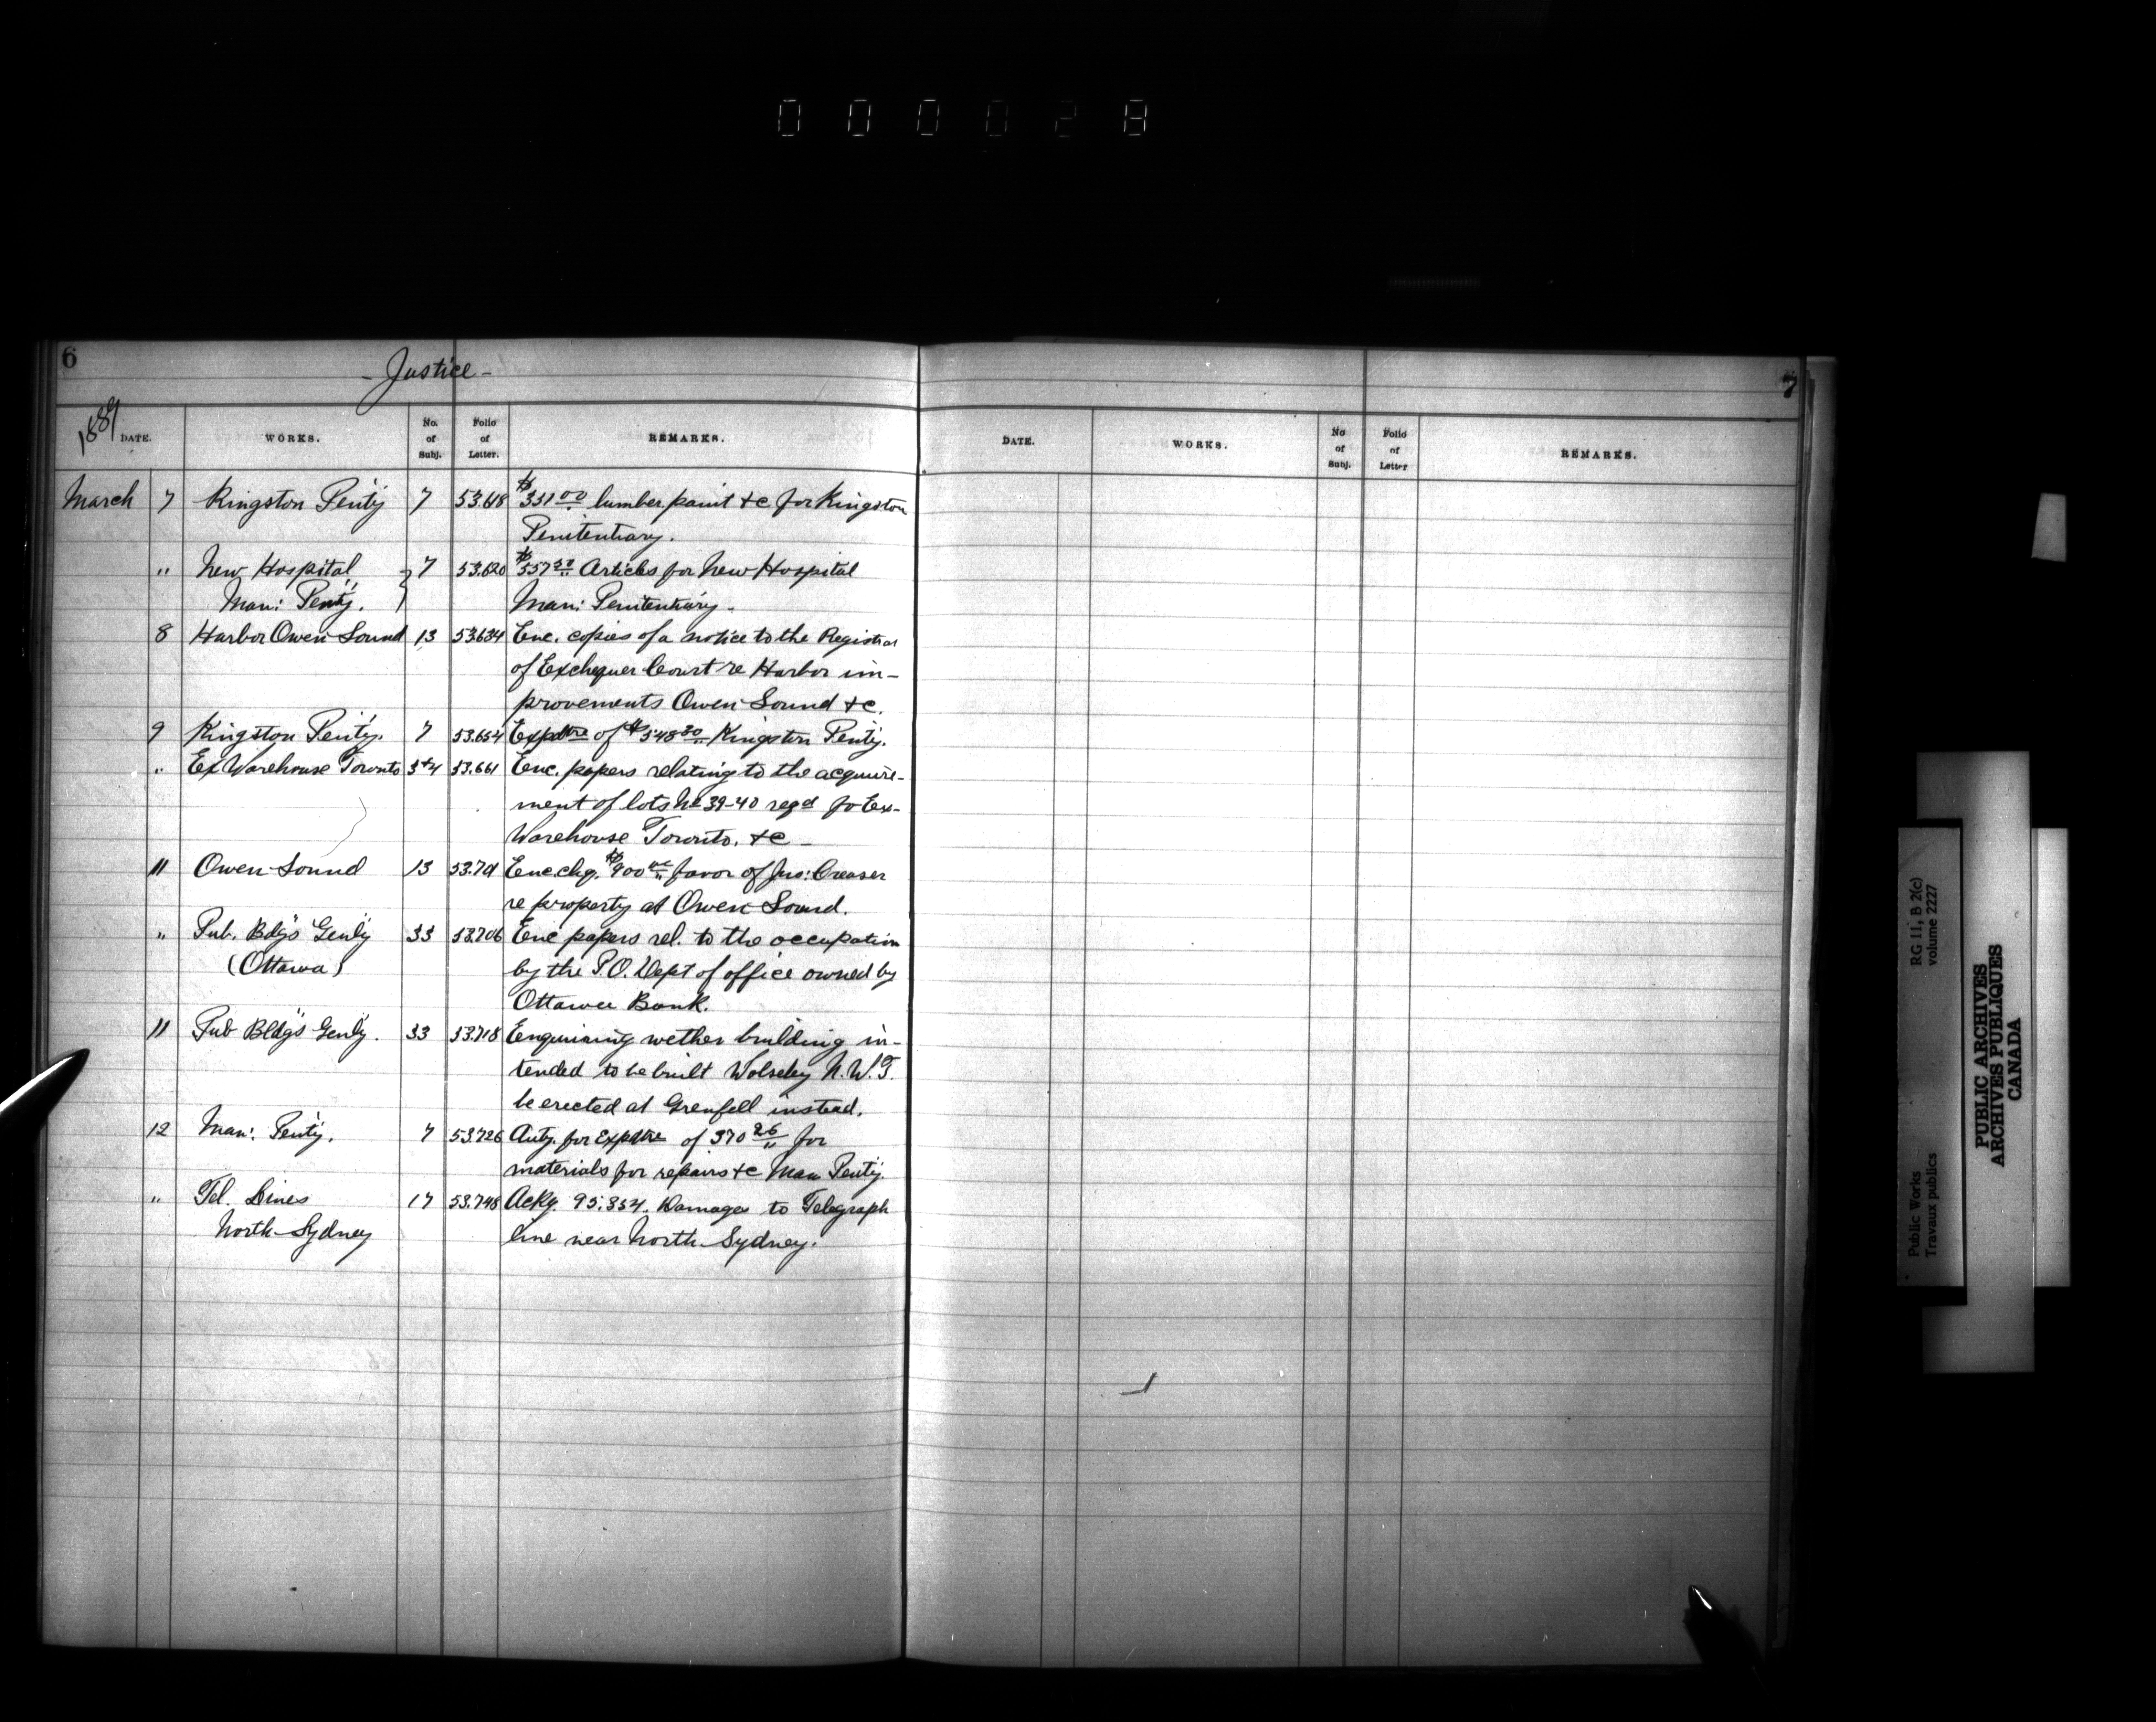 000028
6
- Justice -
1889 DATE. WORKS. No. of Subj. Folio of Letter. REMARKS.
March 7 Kingston Penty 7 53.618 $331 00 lumber, paint &c for Kingston
Penitentiary.
" New Hospital } 7 53.620 $557 50 Articles for New Hospital
Man: Penty. } Man: Penitentiary.
8 Harbor Owen Sound 13 53634 Enc. copies of a notice to the Registrar
of Exchequer Court re Harbor im-
provements Owen Sound &c.
9 Kingston Penty. 7 53.654 Expdtre of $548 80 Kingston Penty.
" Ex Warehouse Toronto 3+4 53.661 Enc. papers relating to the acquire-
ment of lots No 39-40 reqd fo Ex-
Warehouse Toronto. &c -
11 Owen Sound 13 53.701 Enc. chq. $900 00 favor of Jno: Creasor
re property at Owen Sound.
" Pub. Bdgs Genly 33 53.706 Enc papers rel. to the occupation
(Ottawa) by the P.O. Dept of office owned by
Ottawa Bank.
11 Pub Bldgs Genly. 33 53.718 Enquiring wether building in-
tended to be built Wolseley N.W.T.
be erected at Grenfell instead.
12 Man: Penty. 7 53.726 Auty. for Expdtre of 370 26 for
materials for repairs &c Man Penty.
" Tel. Lines 17 53.748 Ackg. 95.354. Damages to Telegraph
North Sydney line near North Sydney.
7
DATE. WORKS. No of Subj. Folio of Letter REMARKS.
Public Works RG 11, B 2(c)
Travaux publics volume 2227
PUBLIC ARCHIVES
ARCHIVES PUBLIQUES
CANADA